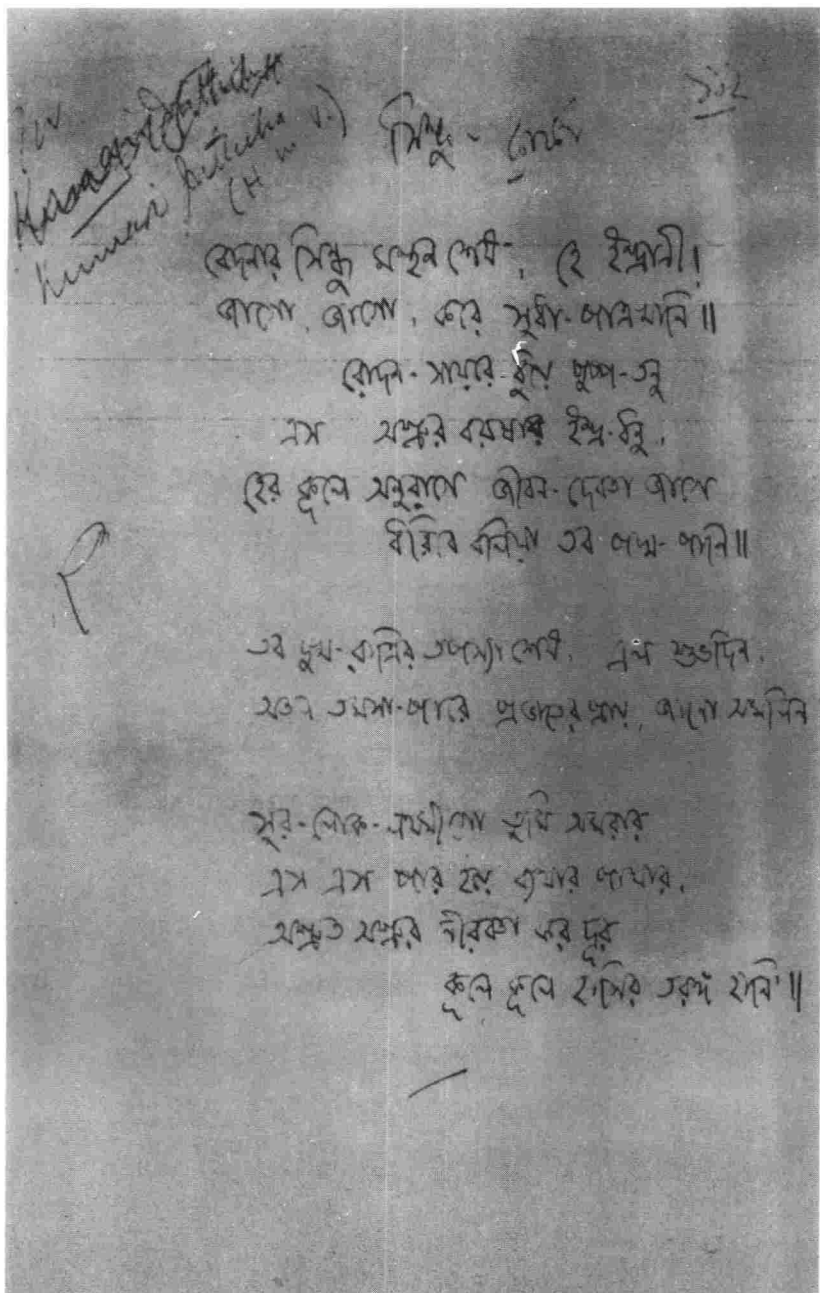 ১০২
Kumari
(H. M. V.)
সিন্ধু -
বেদনার সিন্ধু মন্থন শেষ, হে ইন্দ্রানী!
জাগো, জাগো, করে সুধা-পাত্রখানি॥
রোদন-সায়রে ধুয়ে পুষ্প-তনু
এস অশ্রুর বরষার ইন্দ্র-ধনু,
হের কূলে অনুরাগে জীবন-দেবতা জাগে
ধরিবে বলিয়া তব পদ্ম-পাণি॥
তব দুখ-রাত্রির তপস্যা শেষ, এল শুভদিন,
অতল তমসা-পারে প্রভাতের প্রায়, জাগো অমলিন
সুর-লোক-লক্ষ্মীগো তুমি অমরার
এস এস পার হয়ে ব্যথার পাথার,
অশ্রুত অশ্রুর নীরবতা কর দূর
কূলে কূলে হাসির তরঙ্গ হানি'॥